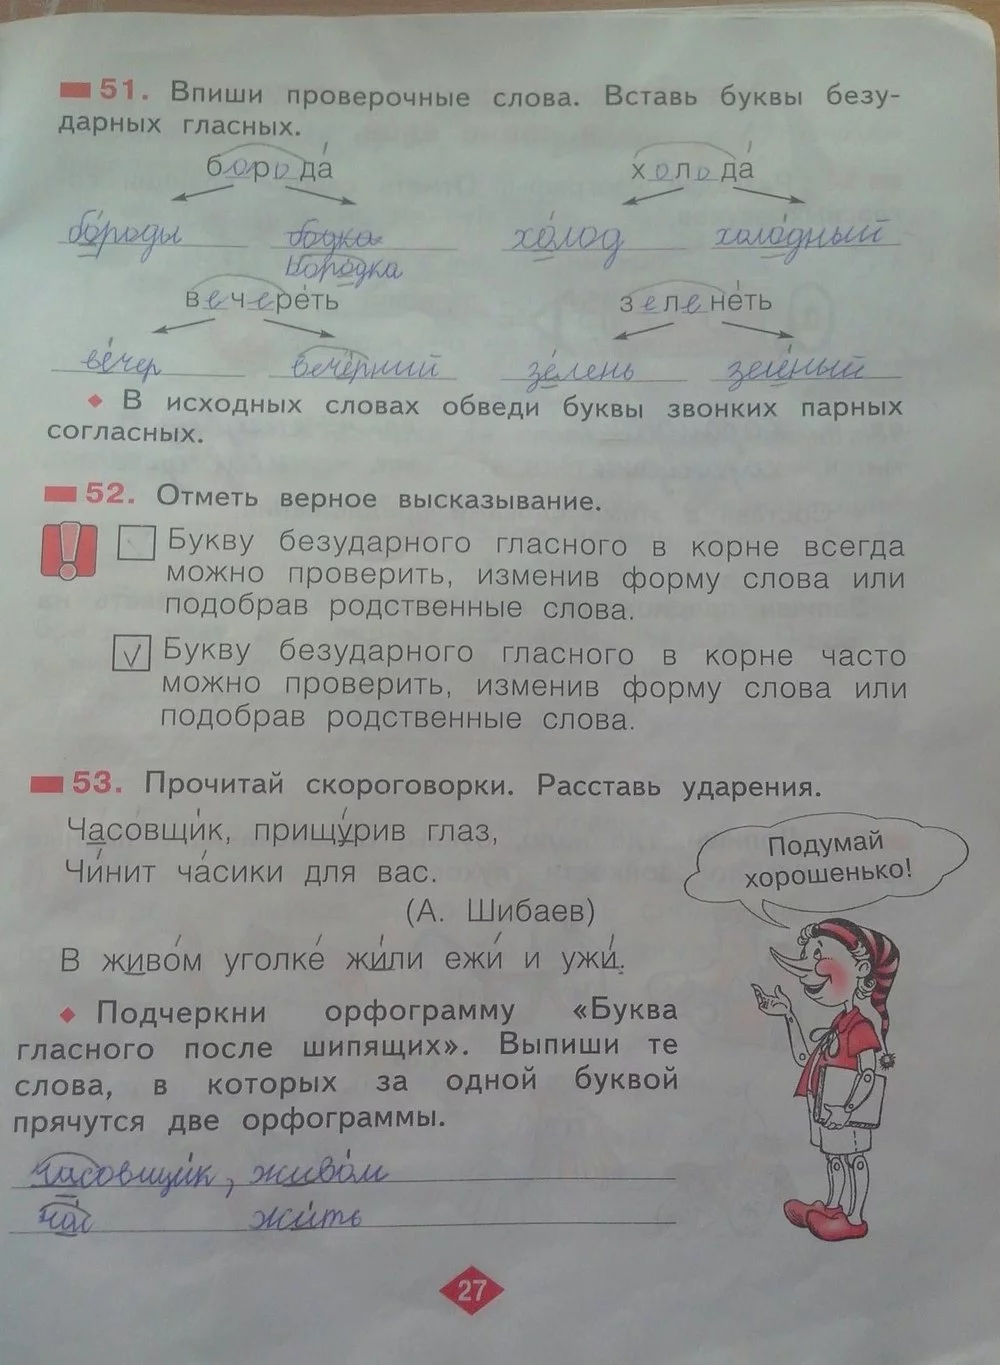 51. Впиши проверочные слова. Вставь буквы безу-
дарных гласных.
борода́ холода́
бо́роды бодка хо́лод холо́дный
бородка
вечере́ть зелене́ть
ве́чер вече́рний зе́лень зелёный
В исходных словах обведи буквы звонких парных
согласных.
52. Отметь верное высказывание.
Букву безударного гласного в корне всегда
можно проверить, изменив форму слова или
подобрав родственные слова.
√ Букву безударного гласного в корне часто
можно проверить, изменив форму слова или
подобрав родственные слова.
53. Прочитай скороговорки. Расставь ударения.
Часовщи́к, прищу́рив глаз,
Чи́нит ча́сики для вас.
(А. Шибаев)
В живо́м уголке́ жи́ли ежи́ и ужи́.
Подумай
хорошенько!
Подчеркни орфограмму «Буква
гласного после шипящих». Выпиши те
слова, в которых за одной буквой
прячутся две орфограммы.
часовщи́к, живо́м
ча́с жи́ть
27